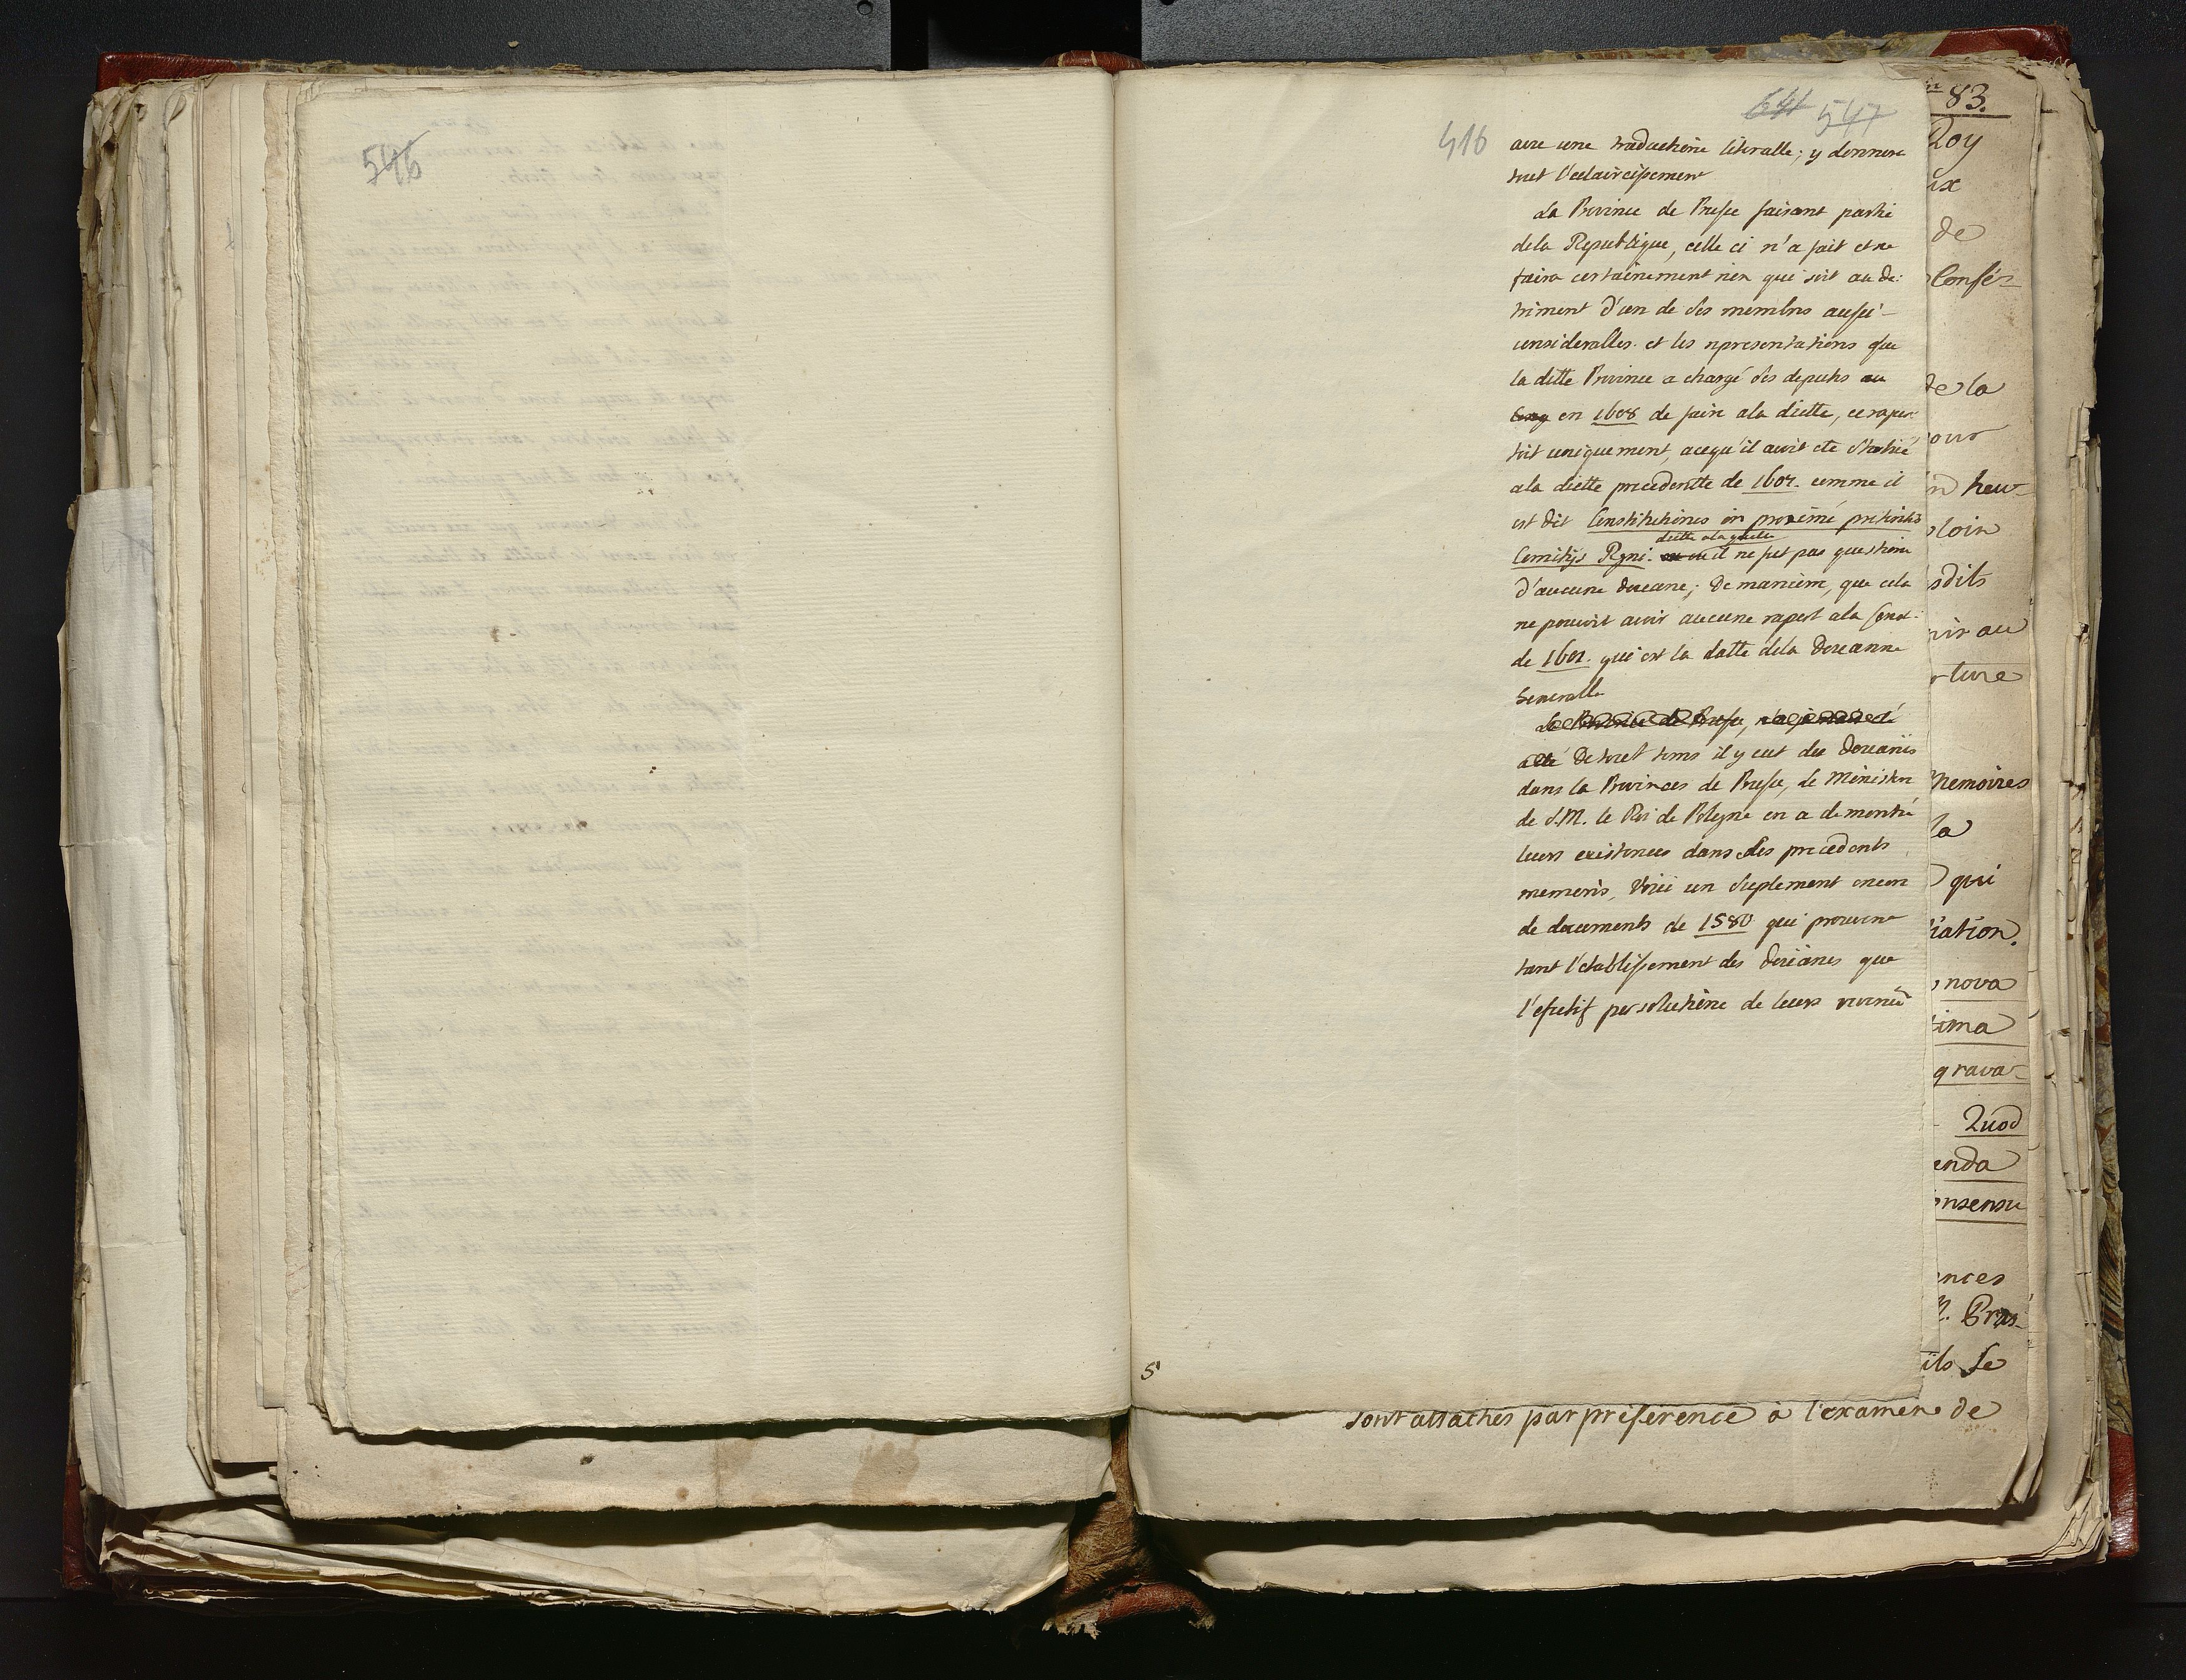 546
641 547
416
avec une traductione literalle; y donnera
tout l'eclaircissement
La Province de Prusse faisant partie
dela Republique, celle ci n'a fait et ne
faira certainement rien qui soit au de:
triment d'un de ses membres aussi
consideralles. et les representations que
la ditte Province a chargé ses deputés au
en 1608 de faire ala diette, ce rapor:
toit uniquement, acequ'il avoit ete statué
ala diette precedentte de 1607. comme il
est dit Constitutiones in proximé preteritis
diette ala quelle
Comitijs Regni. il ne fut pas questione
d'aucune douane; De maniere, que cela
ne pouvoit avoir aucune raport ala Const:
de 1601. qui est la datte dela Douanne
Generalle
La Province de Prusse, n'a jamais été
De tout tems il y eut des Douanes
dans la Provinces de Prusse, le Ministre
de S.M. le Roi de Pologne en a demontré
leurs existences dans les precedents
memoires, Voici un suplement encore
de documents de 1580 qui prouvent
tant l'etablissement des Douanes que
l'efectif persolutione de leurs revenus
5
83.
Roy
ix
de
Confé-
de la
our
heu-
loin
sdits
rir au
rture
Memoires
la
qui
iation.
nova
tima
grava-
Quod
enda
onsensu
ences
ils se
sont attachés par préférence à l'examen de